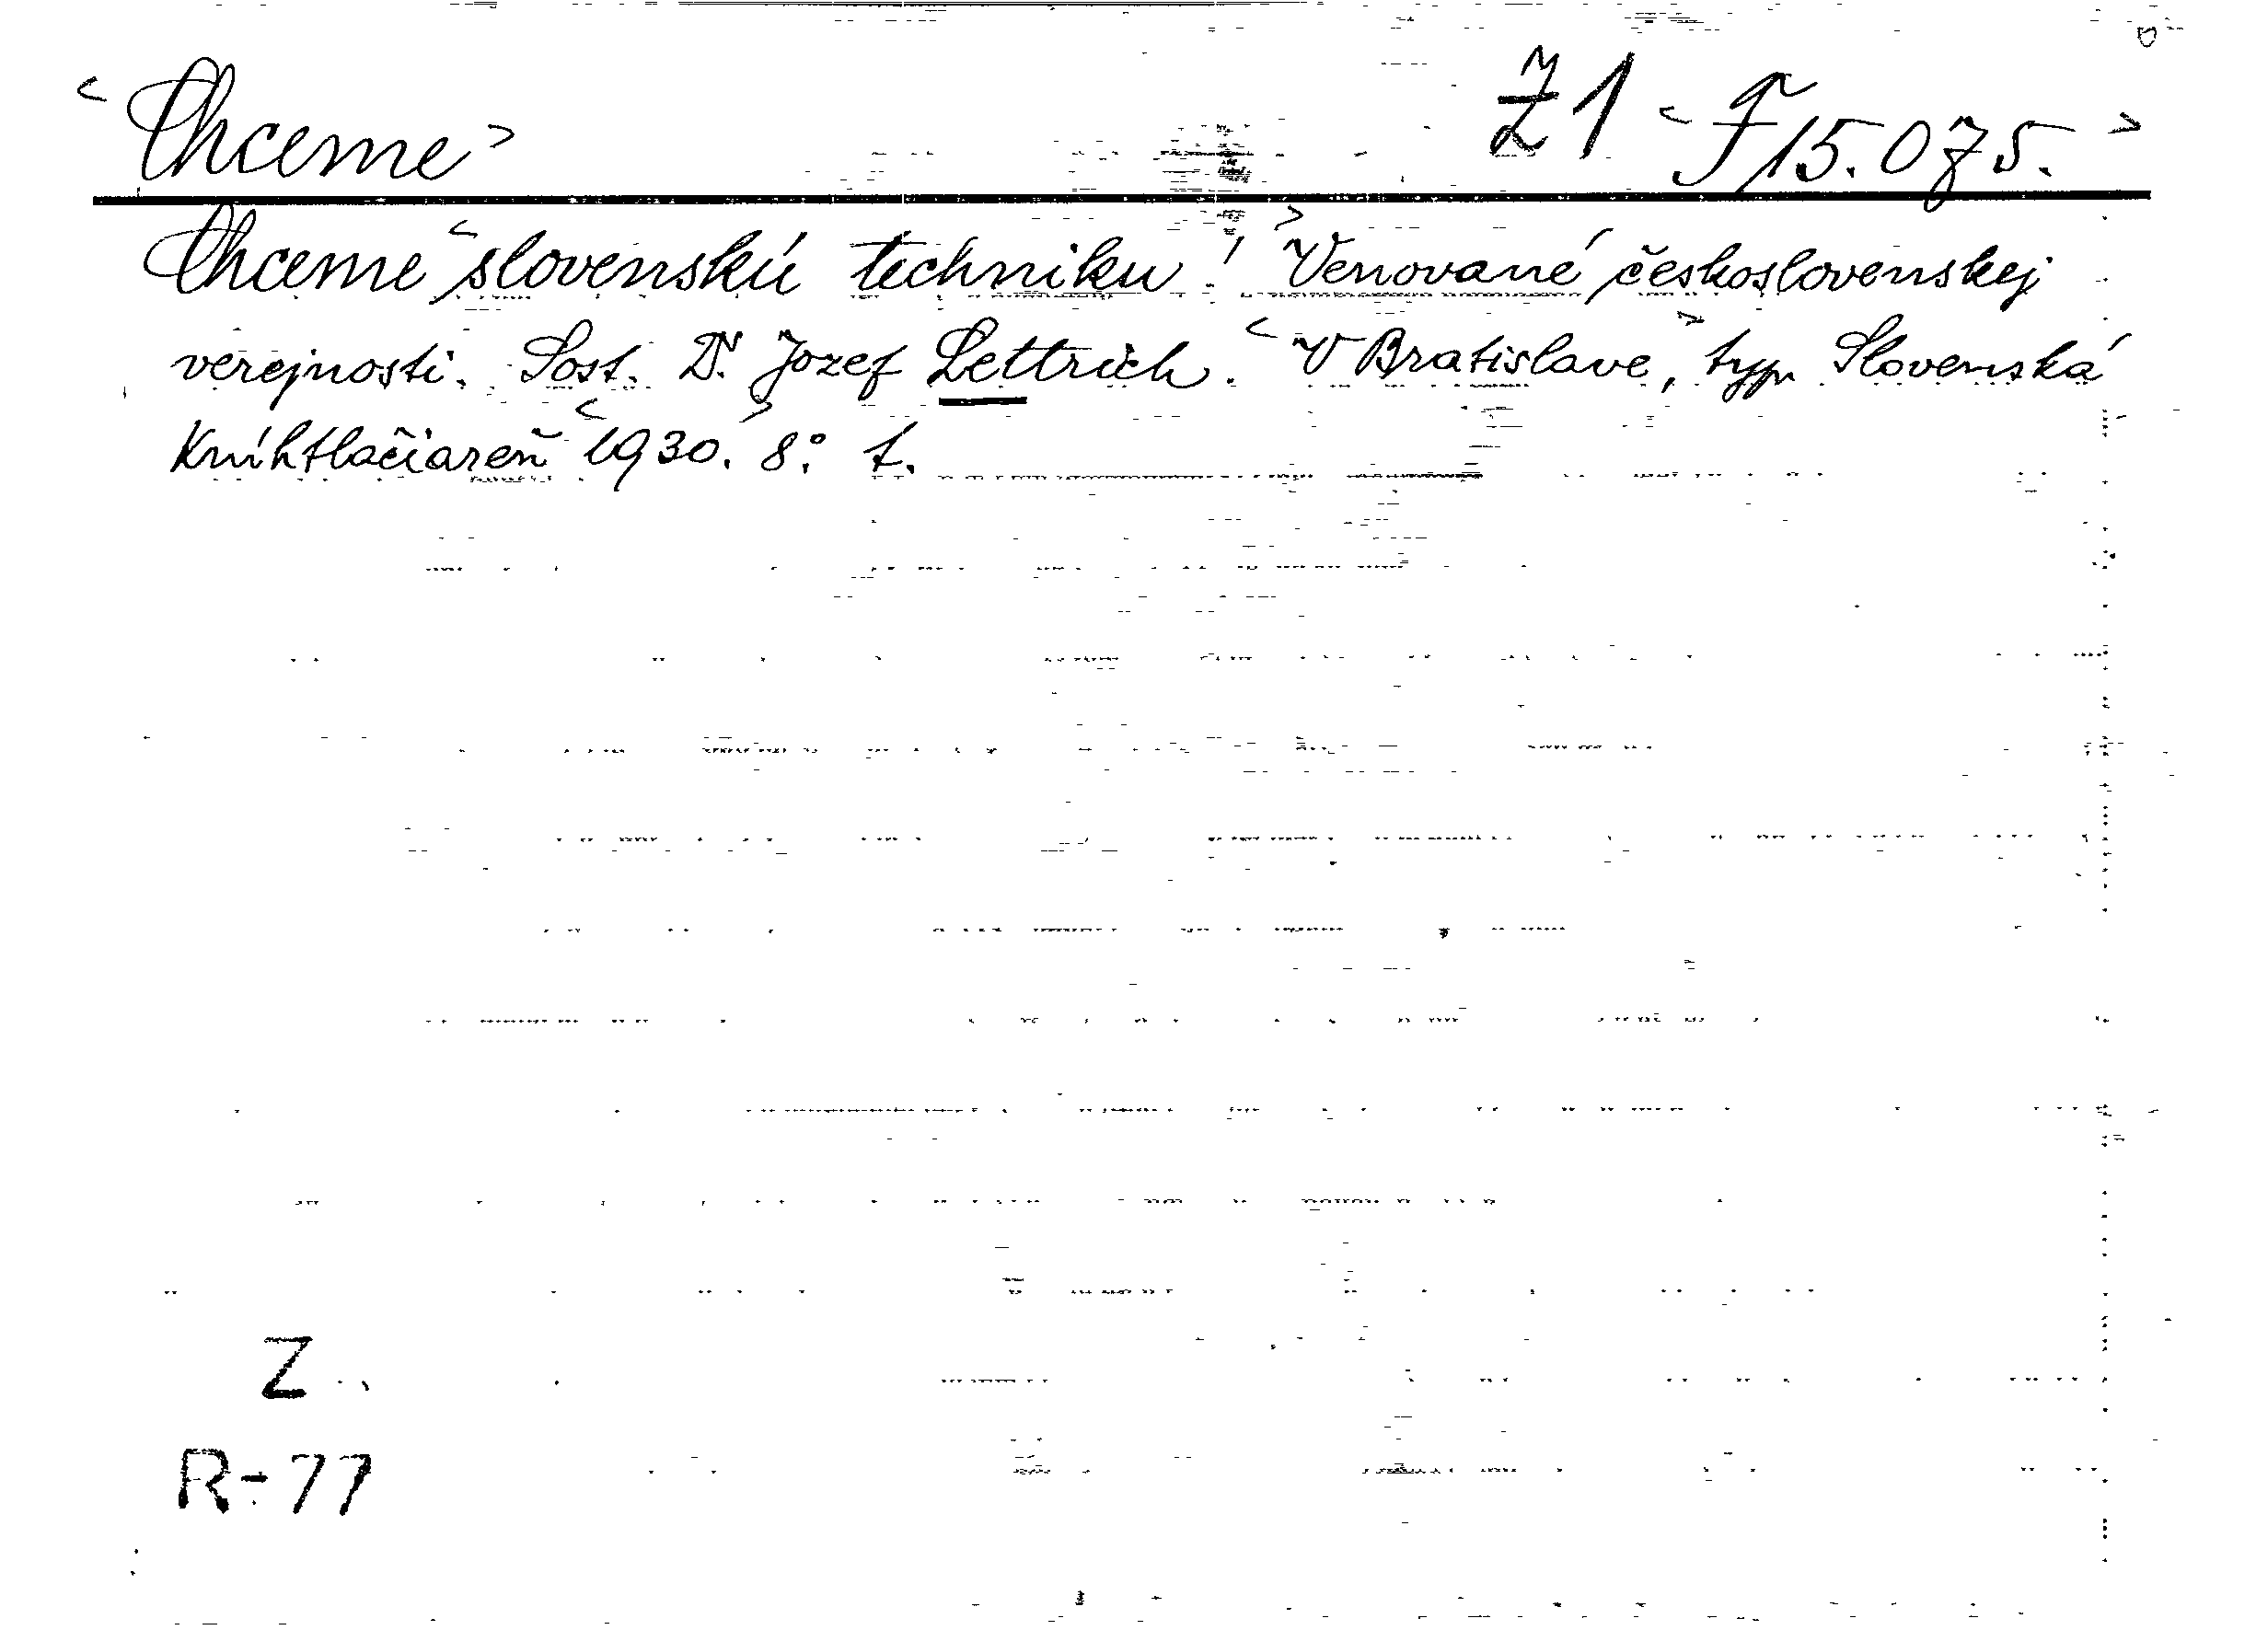 <Chceme> Ž1 <F 15.075.>
Chceme <slovenskú techniku!> Venované československej
verejnosti. Sost. Dr. Jozef Lettrich. <V Bratislave,> typ. Slovenská
Kníhtlačiareň <1930.> 8.° t.
Z
R-77